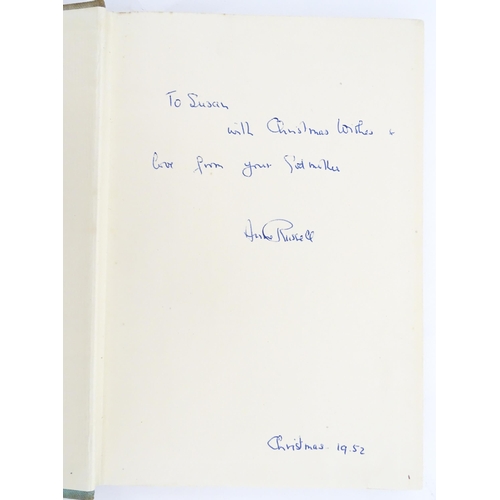 To Susan
with Christmas Wishes &
love from your Godmother
Russell
Christmas 1952